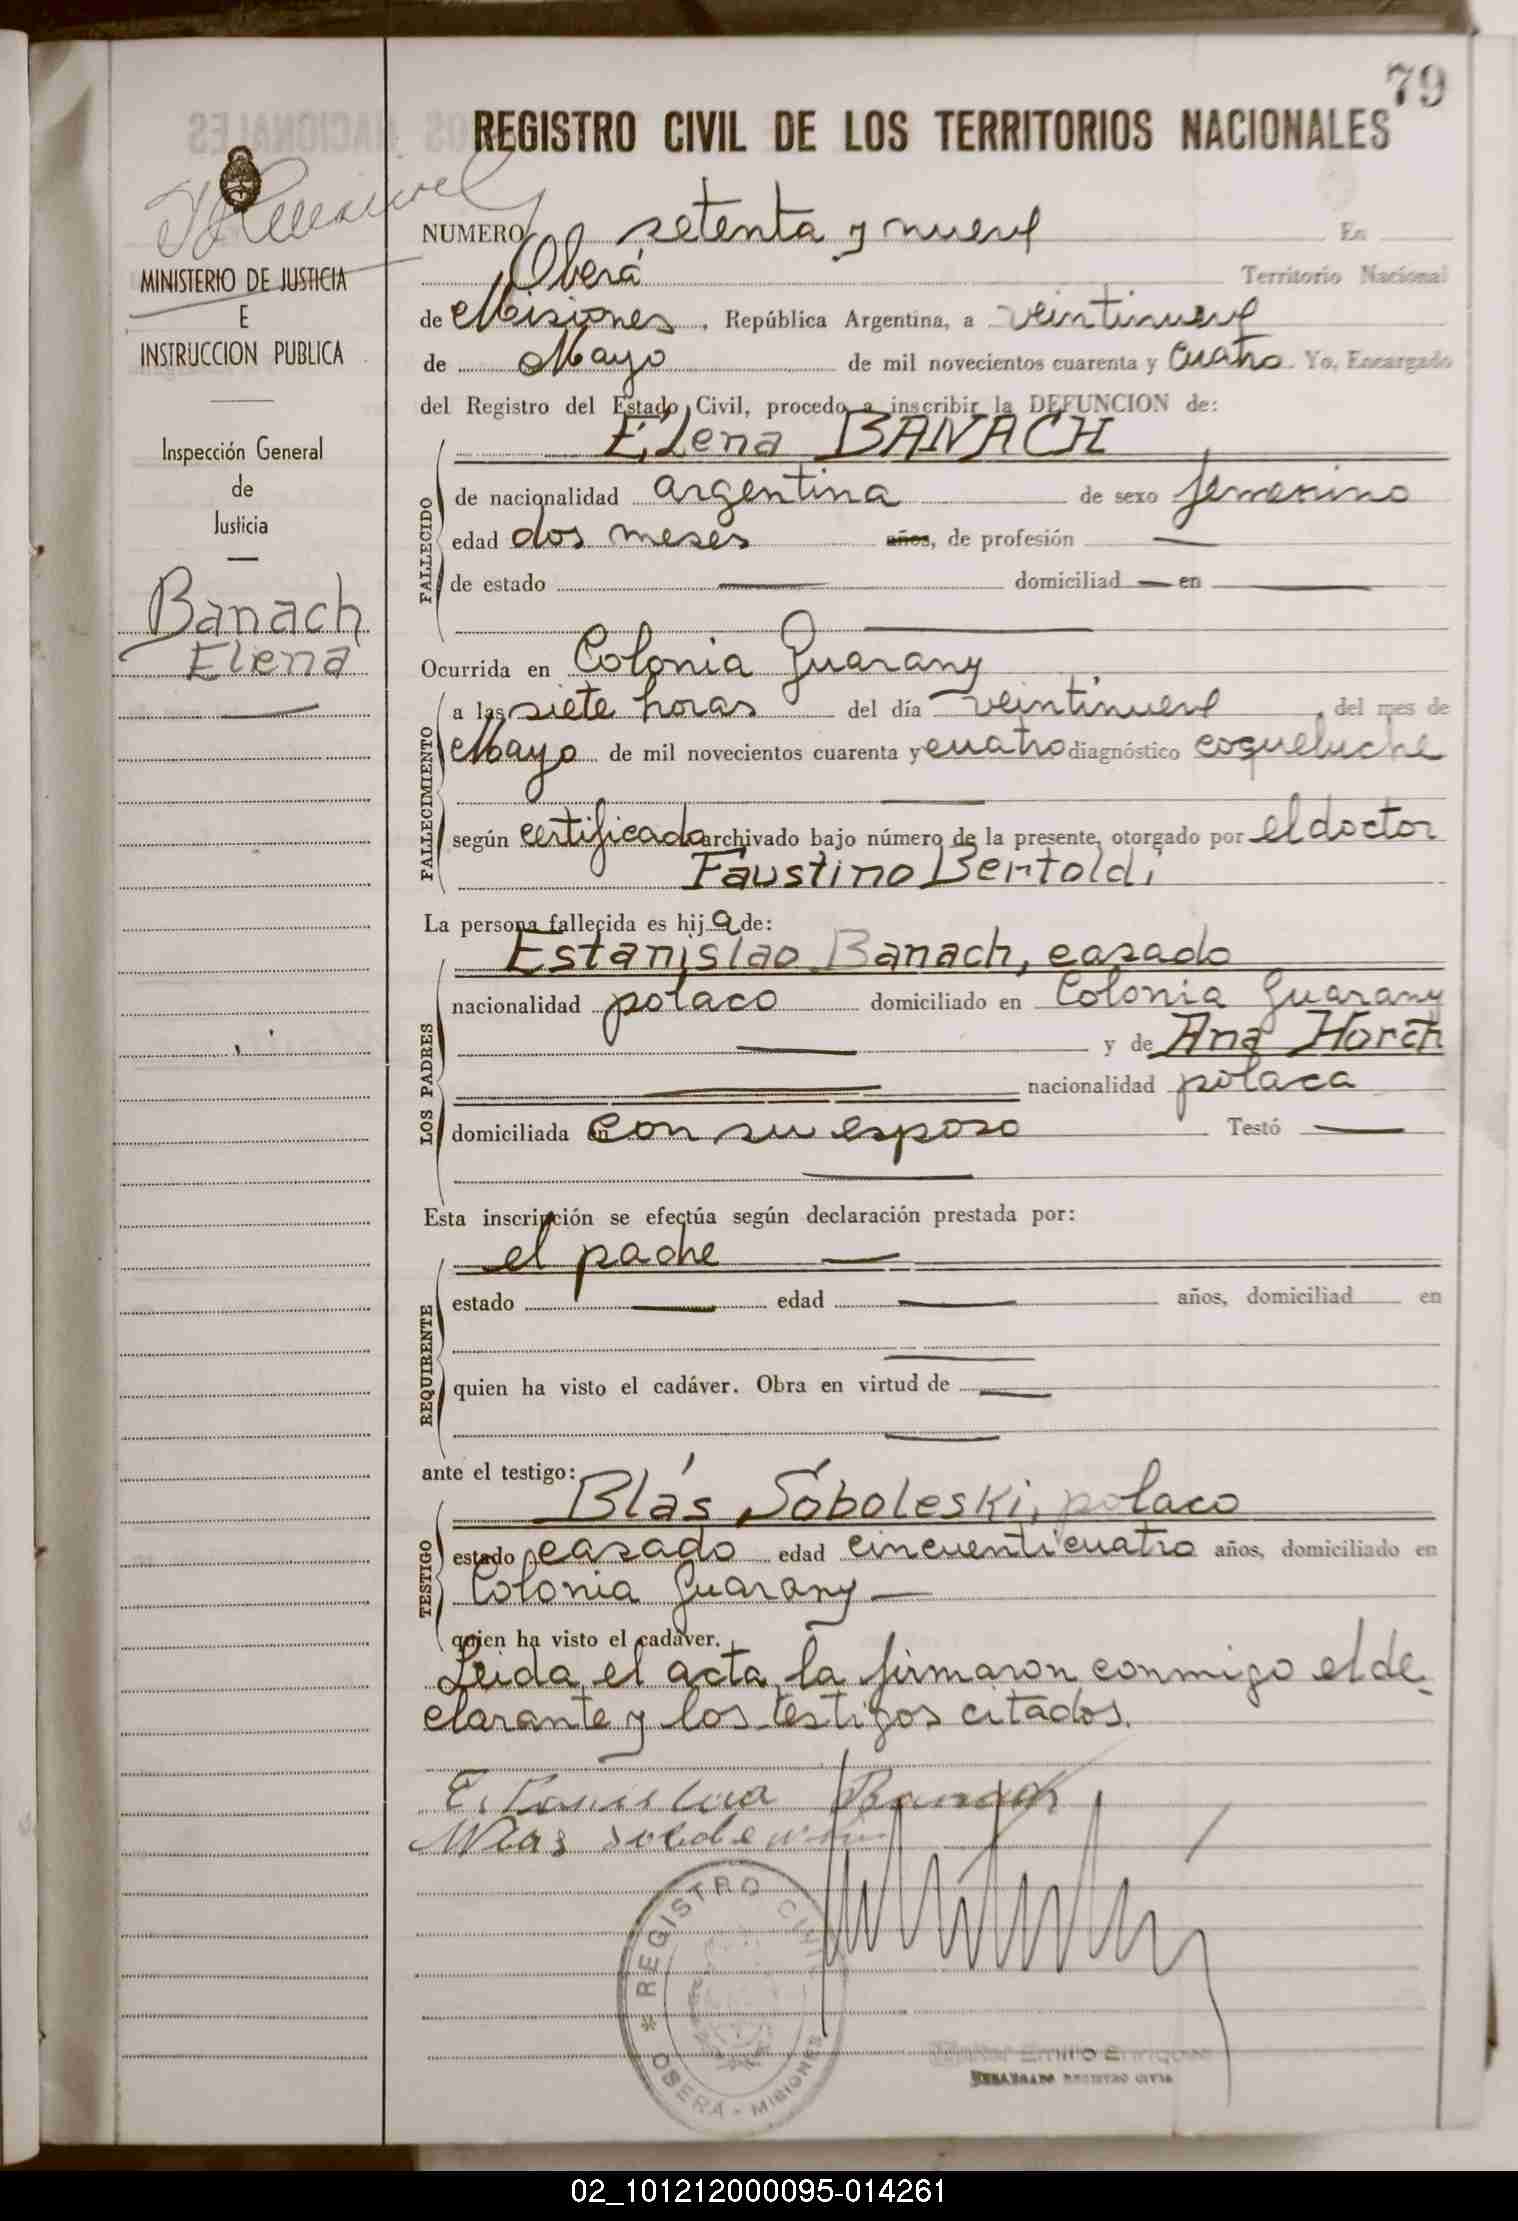 79
REGISTRO CIVIL DE LOS TERRITORIOS NACIONALES
MINISTERIO DE JUSTICIA
E
INSTRUCCION PUBLICA
Inspección General
de
Justicia
Banach
Elena
NUMERO setenta y nueve En
Oberá Territorio Nacional
de Misiones, República Argentina, a veintinueve
de Mayo de mil novecientos cuarenta y cuatro Yo, Encargado
del Registro del Estado Civil, procedo a inscribir la DEFUNCION de:
Elena BANACH
FALLECIDO
de nacionalidad argentina de sexo femenino
edad dos meses años, de profesión —
de estado — domiciliad — en —
—
Ocurrida en Colonia Guarany
FALLECIMIENTO
a las siete horas del día veintinueve, del mes de
Mayo de mil novecientos cuarenta y cuatro diagnóstico coqueluche
—
según certificado archivado bajo número de la presente, otorgado por el doctor
Faustino Bertoldi
La persona fallecida es hija de:
LOS PADRES
Estanislao Banach, casado
nacionalidad polaco domiciliado en Colonia Guarany
— y de Ana Horch
— nacionalidad polaca
domiciliada en con su esposo Testó —
—
Esta inscripción se efectúa según declaración prestada por:
REQUIRENTE
el padre —
estado — edad — años, domiciliad en
—
quien ha visto el cadáver. Obra en virtud de —
—
ante el testigo:
TESTIGO
Blás Soboleski, polaco
estado casado edad cincuenticuatro años, domiciliado en
Colonia Guarany —
quien ha visto el cadáver.
Leida el acta, la firmaron conmigo el de-
clarante y los testigos citados.
Banach
REGISTRO CIVIL
* OBERÁ - MISIONES
Emilio Enrique
ENCARGADO REGISTRO CIVIL
02_101212000095-014261